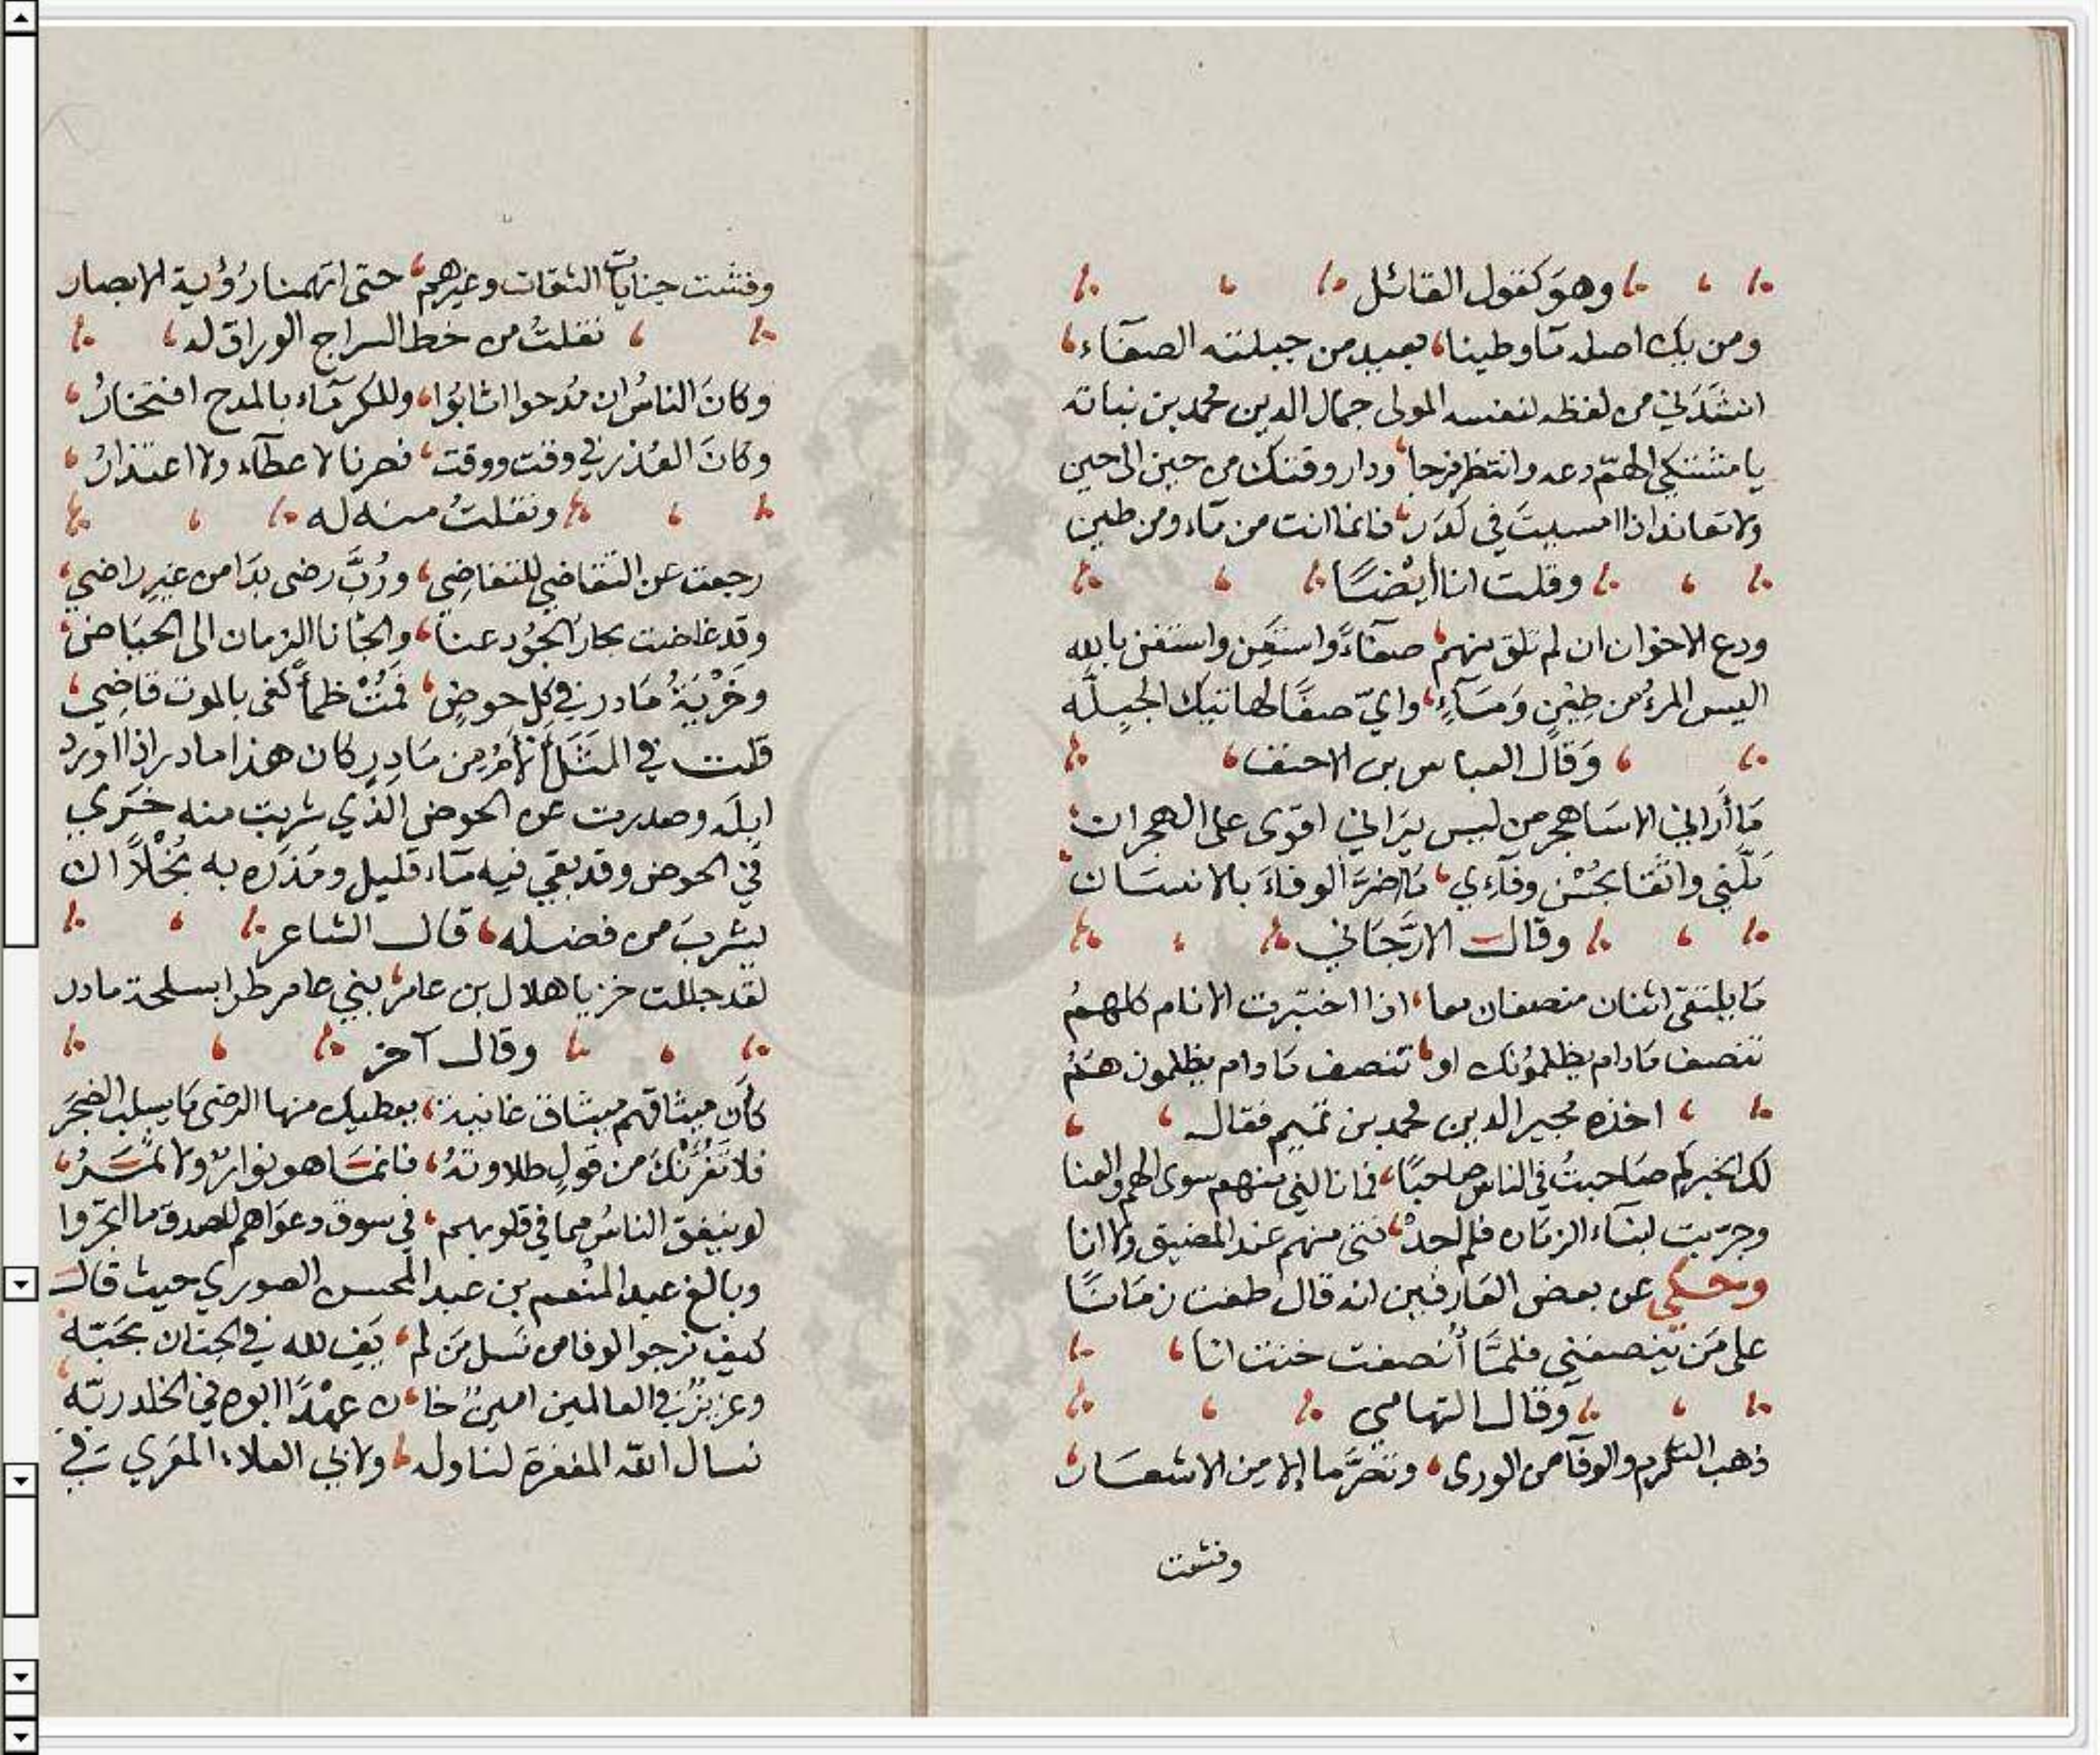 وهو كقول القائل
ومن يك اصله مآء وطينا، بعيد من جبلته الصفآء،
انشدني من لفظه لنفسه المولى جمال الدين محمد بن نباتة
يا مشتكي الهمّ دعه وانتظر فرجا، ودار وقتك من حين الى حين
ولا تعاند اذا امسيت في كدَر، فانما انت من مآء ومن طين
وقلت انا ايضًا
ودع الاخوان ان لم تلق منهم، صفآءً واستعِن واستغن بالله
اليس المرءُ من طينٍ ومَآءٍ، وايّ صفًا لهاتيك الجبِلَّه
وقال العباس بن الاحنف،
مَا أَراني الا سَاهجر من ليس يَراني اقوى على الهجران
مَلّني واثقًا بحُسْن وفآءي، مَا اضرَّ الوفاءَ بالانسَان
وقال الارَّجَاني
مَا يلتقى اثنان منصفان معا، اذا اختبرت الانام كلهمُ
تنصف مَا دام يظلمونك او، تنصف مَا دام يظلمون همُ
، اخذه مجير الدين محمد بن تميم فقال ،
لك الخير كم صَاحبتُ في الناس صاحبًا، فما نالني منهم سوى الهم والعنا
وجربت ابنآء الزمان فلم اجدْ، فتى منهم عند المضيق ولا انا
وحكي عن بعض العارفين انه قال طفت زمَانًا
على مَن ينصفني فلمَّا أُنصفت خنت انا،
وقال التهامي
ذهب التكرم والوفآ من الورى، وتصَرَّما إلا من الاشعَار
وفشت
وفشت جنايات الثقات وغيرهم، حتى اتهمنا رُؤية الابصار
، نقلتُ من خط السراج الوراق له،
وكانَ الناسُ ان مُدحوا اثابُوا، وللكرمآء بالمدح افتخارُ،
وكانَ العُذر في وقت ووقت، فصرنا لا عطآء ولا اعتذارُ،
ونقلتُ منه له
رجعت عن التقاضي للتغاضِي، ورُبَّ رضى بدَا من غير راضي،
وقد غاضت بحارُ الجُود عنا، والجانا الزمان الى الحيَاض،
وخَرْيَةُ مَادر في كل حوضٍ، فمُتْ ظمأً كفى بالموت قاضِي،
قلت في المَثَل أَلأَمُ من مَادِر كان هذا مادر اذا اورد
ابله وصدرت عن الحوض الذي شربت منه خَري
في الحوض وقد بقي فيه مآء قليل ومَدَره به بُخْلاً ان
يشربَ من فضله، قال الشاعر
لقد جللت خزيا هلال بن عامر، بني عامر طرا بسلحة مادر
وقال آخر
كأن ميثاقهم ميثاق غانية، يعطيك منها الرضى مَا يسلب الضجَرَ
فلا تَغُرَّنْكَ من قولٍ طلاوتهُ، فانمَا هو نوارٌ ولا ثمَرُ،
لو ينفق الناسُ مما في قلوبهم، في سوق دعوَاهم للصدق ما اتجروا
وبالغ عبد المنعم بن عبد المحسن الصوري حيث قال
كيف نرجو الوفا من نَسل مَن لم، يَفِ لله في الجنان بحَبّه
وعزيزٌ في العالمين امينٌ خا، ن عهْدًا ابوه في الخلد ربّه
نسال الله المغفرة لنا وله، ولابي العلاء المَعَري في